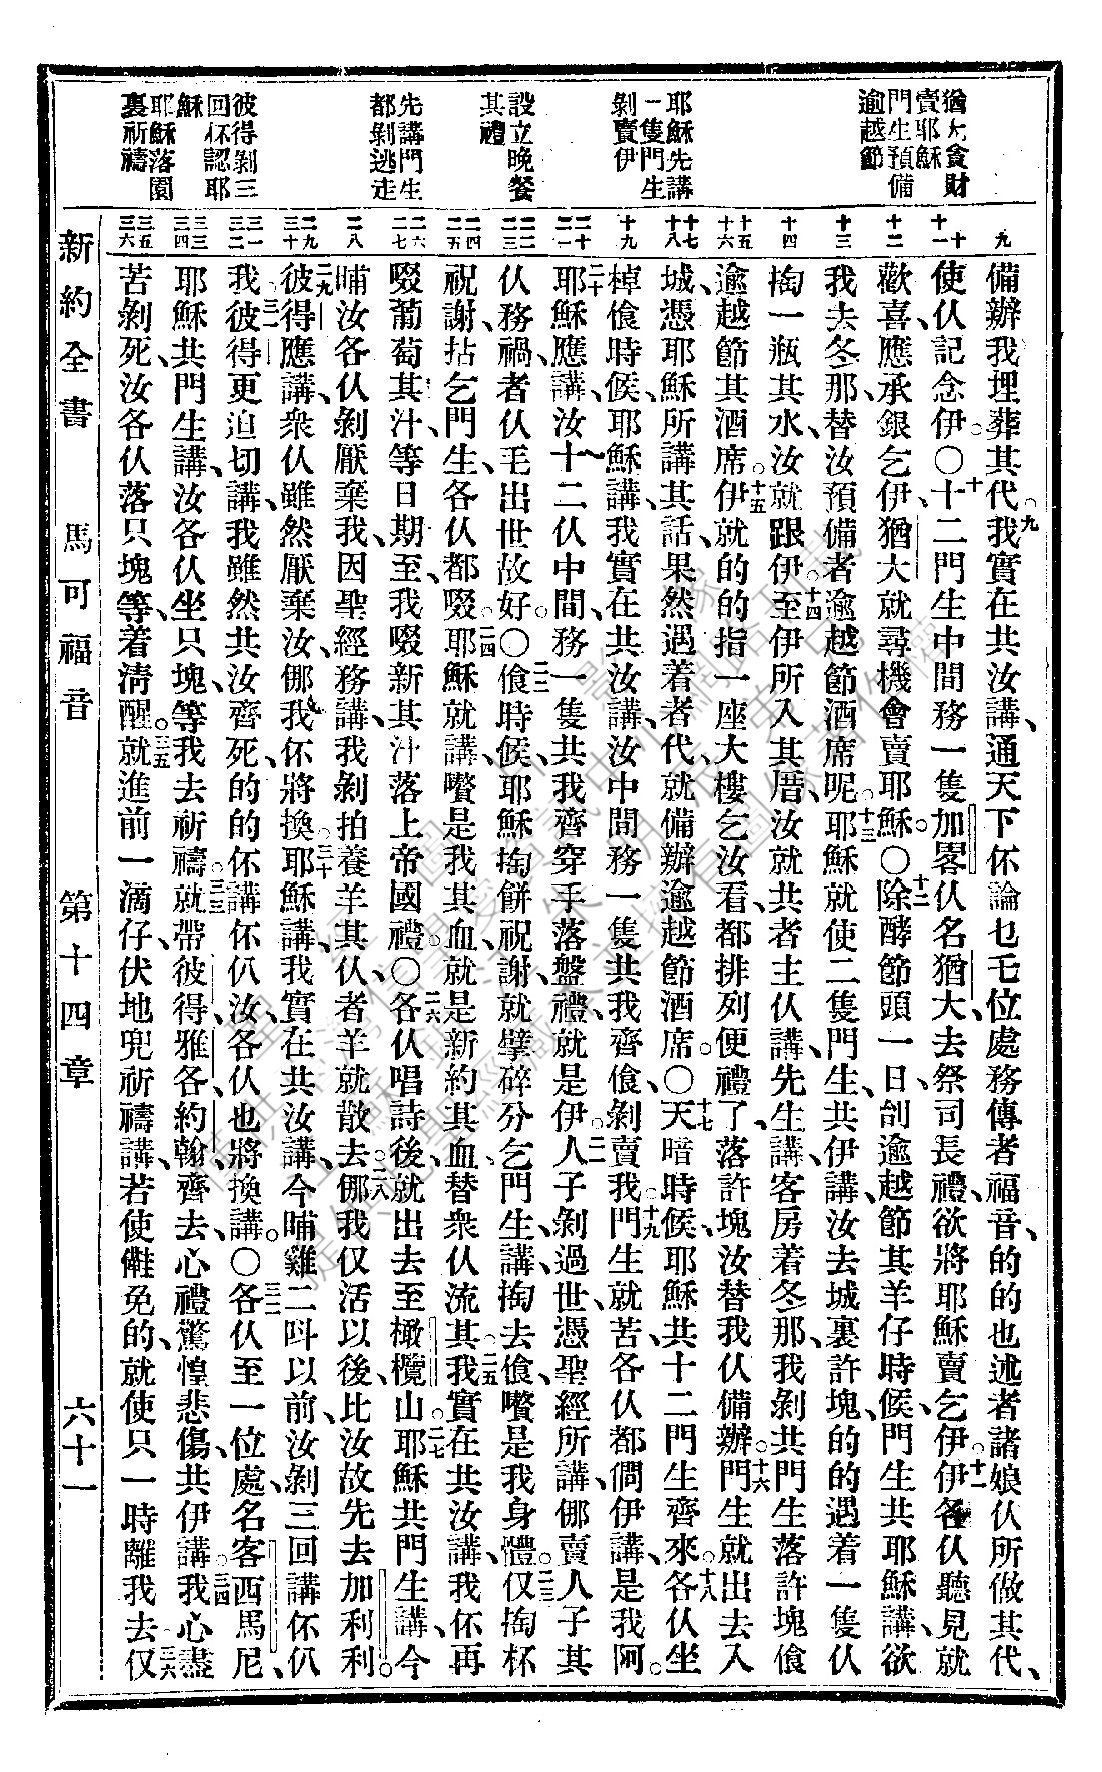 猶大貪財
賣耶穌
門生預備
逾越節
耶穌先講
一隻門生
剝賣伊
設立晚餐
其禮
先講門生
都剝逃走
彼得剝三
回伓認耶
穌
耶穌落園
裏祈禱
九
十
十一
十二
十三
十四
十五
十六
十七
十八
十九
二十
二一
二二
二三
二四
二五
二六
二七
二八
二九
三十
三一
三二
三三
三四
三五
三六
備辦我埋葬其代。九我實在共汝講、通天下伓論乜乇位處務傳者福音、的的也述者諸娘仈所做其代、
使仈記念伊。○十十二門生中間務一隻加畧仈名猶大、去祭司長禮、欲將耶穌賣乞伊。十一伊各仈聽見就
歡喜、應承銀乞伊、猶大就尋機會賣耶穌。○十二除酵節頭一日、刣逾越節其羊仔時候、門生共耶穌講、欲
我去冬那、替汝預備者逾越節酒席呢。十三耶穌就使二隻門生、共伊講、汝去城裏許塊、的的遇着一隻仈
掏一瓶其水、汝就跟伊。十四至伊所入其厝、汝就共者主仈講、先生講、客房着冬那、我剝共門生落許塊飧
逾越節其酒席。十五伊就的的指一座大樓乞汝看、都排列便禮了、落許塊汝替我仈備辦。十六門生就出去、入
城、憑耶穌所講其話、果然遇着者代、就備辦逾越節酒席。○十七天暗時候、耶穌共十二門生齊來。十八各仈坐
棹飧時候、耶穌講、我實在共汝講、汝中間務一隻共我齊飧、剝賣我。十九門生就苦、各仈都僩伊講、是我阿。
二十耶穌應講、汝十二仈中間、務一隻共我齊穿手落盤禮、就是伊。二一人子剝過世、憑聖經所講、㑚賣人子其
仈務禍、者仈毛出世故好。○二二飧時候、耶穌掏餅祝謝、就擘碎分乞門生、講、掏去飧、嚽是我身體。二三仅掏杯
祝謝、拈乞門生、各仈都啜。二四耶穌就講、嚽是我其血、就是新約其血、替衆仈流其。二五我實在共汝講、我伓再
啜葡萄其汁、等日期至、我啜新其汁落上帝國禮。○二六各仈唱詩後、就出去至橄欖山。二七耶穌共門生講、今
晡汝各仈剝厭棄我、因聖經務講、我剝拍養羊其仈、者羊就散去。二八㑚我仅活以後、比汝故先去加利利。
二九彼得應講、衆仈雖然厭棄汝、㑚我伓將換。三十耶穌講、我實在共汝講、今晡雞二呌以前、汝剝三回講伓仈
我。三一彼得更迫切講、我雖然共汝齊死、的的伓講伓仈汝、各仈也將換講。○三二各仈至一位處、名客西馬尼、
耶穌共門生講、汝各仈坐只塊、等我去祈禱。三三就帶彼得、雅各、約翰、齊去、心禮驚惶悲傷、共伊講。三四我心盡
苦剝死、汝各仈落只塊等、着淸醒。三五就進前一滴仔、伏地兜祈禱講、若使儺免的、就使只一時離我去。三六仅
新約全書 馬可福音 第十四章 六十一